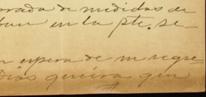 orada de medidas de
en la pte. se
espera de m regre
Dios quiera que